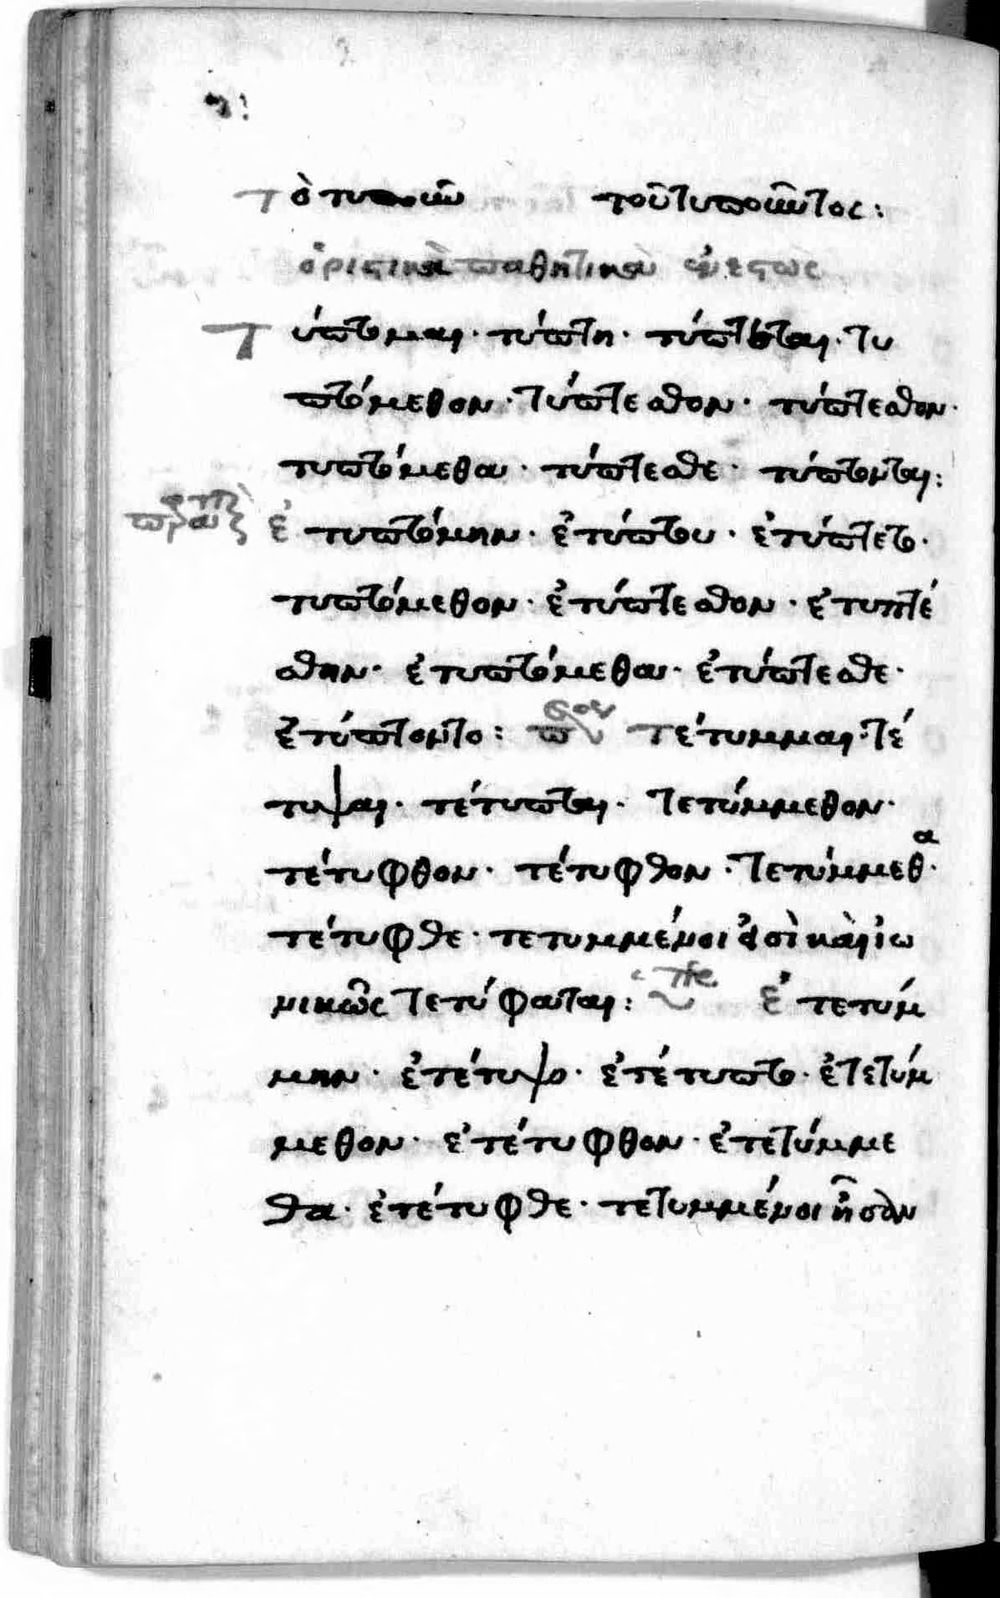 Τὸ τυποῦν τοῦ τυποῦντος:
ὁριστικὰ παθητικὰ ἐνεστὼς
Τύπτομαι· τύπτη· τύπτεται· τυ
πτόμεθον· τύπτεσθον· τύπτεσθον·
τυπτόμεθα· τύπτεσθε· τύπτονται:
ἐτυπτόμην· ἐτύπτου· ἐτύπτετο·
τυπτόμεθον· ἐτύπτεσθον· ἐτυπτέ
σθην· ἐτυπτόμεθα· ἐτύπτεσθε·
ἐτύπτοντο: τέτυμμαι· τέ
τυψαι· τέτυπται· τετύμμεθον·
τέτυφθον· τέτυφθον· τετύμμεθα·
τέτυφθε· τετυμμένοι εἰσὶ καὶ ἰω
νικῶς τετύφαται: ἐτετύμ
μην· ἐτέτυψο· ἐτέτυπτο· ἐτετύμ
μεθον· ἐτέτυφθον· ἐτετύμμε
θα· ἐτέτυφθε· τετυμμένοι ἦσαν